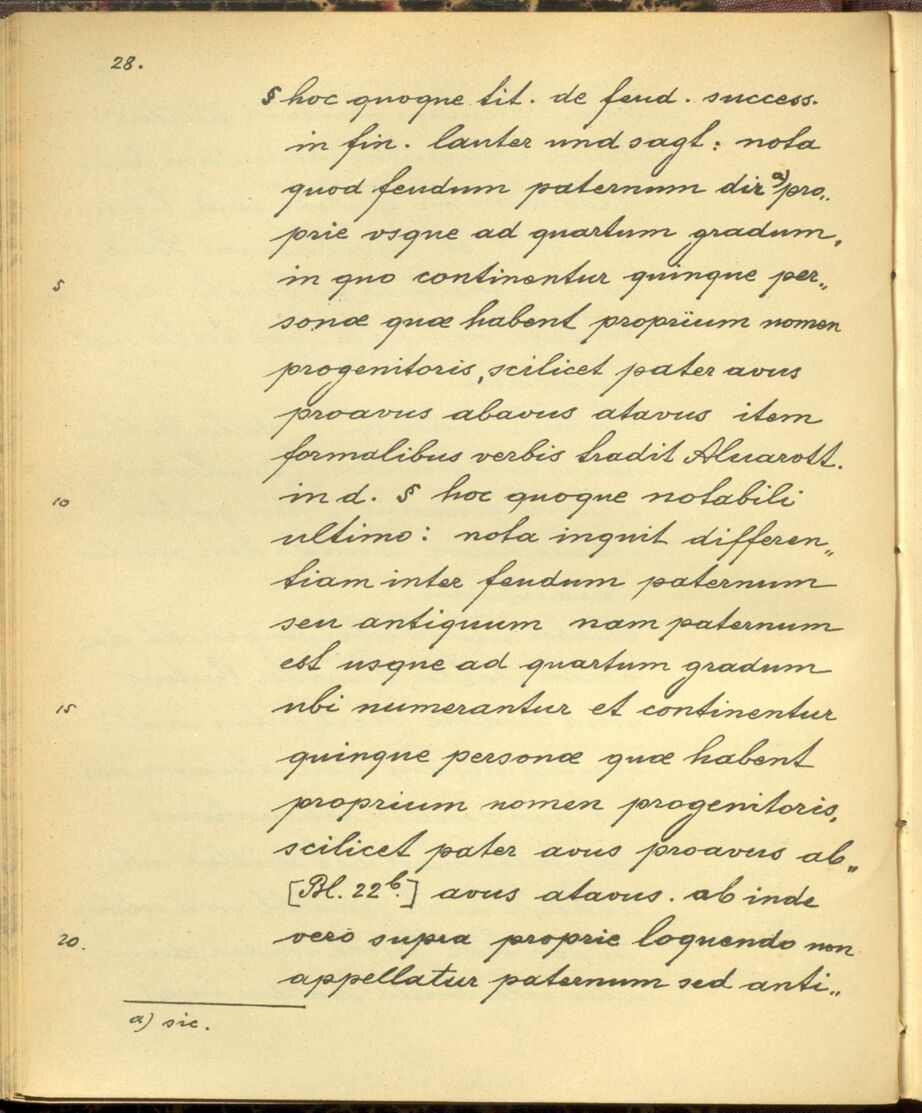 28.
§ hoc quoque tit. de feud. success.
in fin. lauter und sagt: nota
quod feudum paternum dir a) pro„
prie vsque ad quartum gradum,
5 in quo continentur quinque per„
sonæ quæ habent proprium nomen
progenitoris, scilicet pater avus
proavus abavus atavus item
formalibus verbis tradit Aluarott.
10 in d. § hoc quoque notabili
ultimo: nota inquit differen„
tiam inter feudum paternum
seu antiquum nam paternum
est usque ad quartum gradum
15 ubi numerantur et continentur
quinque personæ quæ habent
proprium nomen progenitoris,
scilicet pater avus proavus ab„
[Bl. 22b.] avus atavus. ab inde
20. vero supra proprie loquendo non
appellatur paternum sed anti„
a) sic.